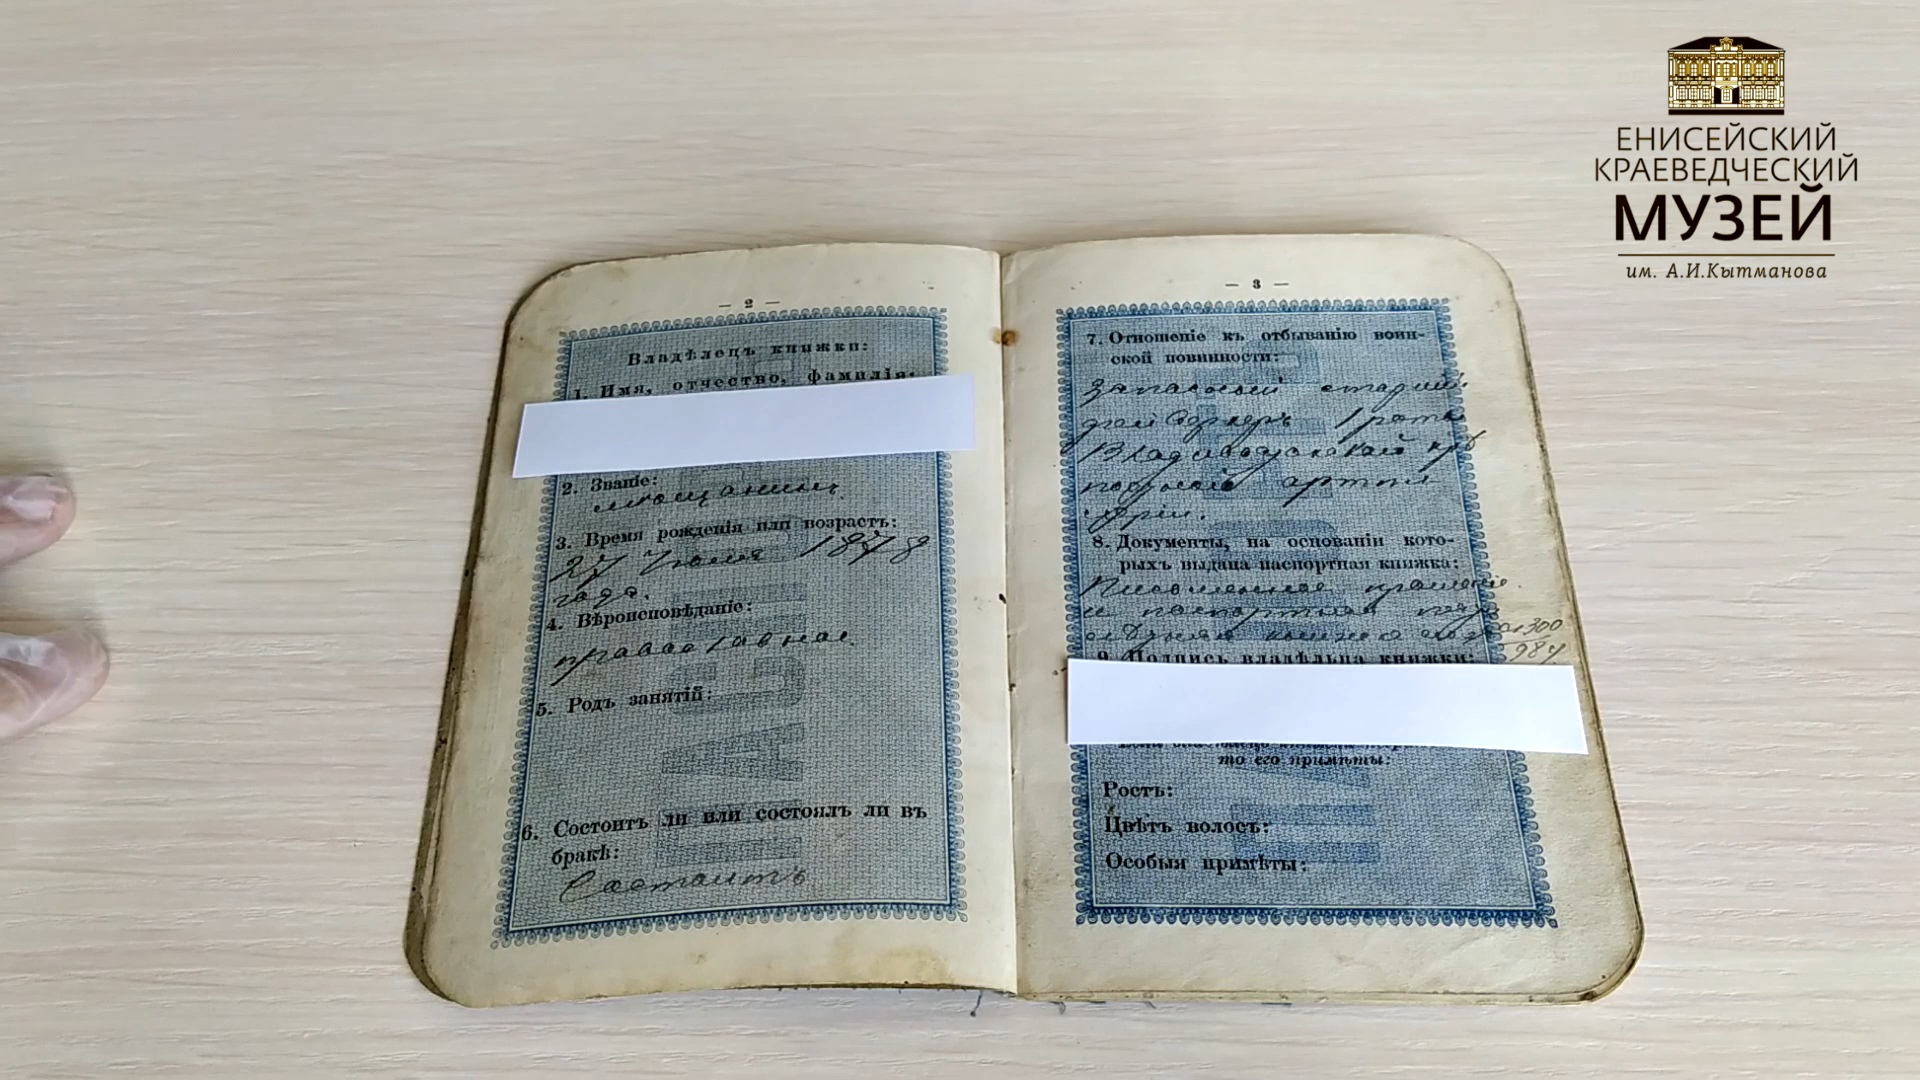 ЕНИСЕЙСКИЙ
КРАЕВЕДЧЕСКИЙ
МУЗЕЙ
им. А.И.Кытманова
— 2 —
Владѣлецъ книжки:
1. Имя, отчество, фамилія:
2. Званіе:
мѣщанинъ
3. Время рожденія или возрастъ:
27 Іюля 1878
года.
4. Вѣроисповѣданіе:
православное.
5. Родъ занятій:
6. Состоитъ ли или состоялъ ли въ
бракѣ:
Состоитъ
— 3 —
7. Отношеніе къ отбыванію воин-
ской повинности:
Запасный старшій
фейерверкеръ 1 роты
Владивостокской крѣ
постной артил
леріи.
8. Документы, на основаніи кото-
рыхъ выдана паспортная книжка:
Письменное
и паспортная
книжка 1300
984
9. Подпись владѣльца книжки:
то его примѣты:
Ростъ:
Цвѣтъ волосъ:
Особыя примѣты: